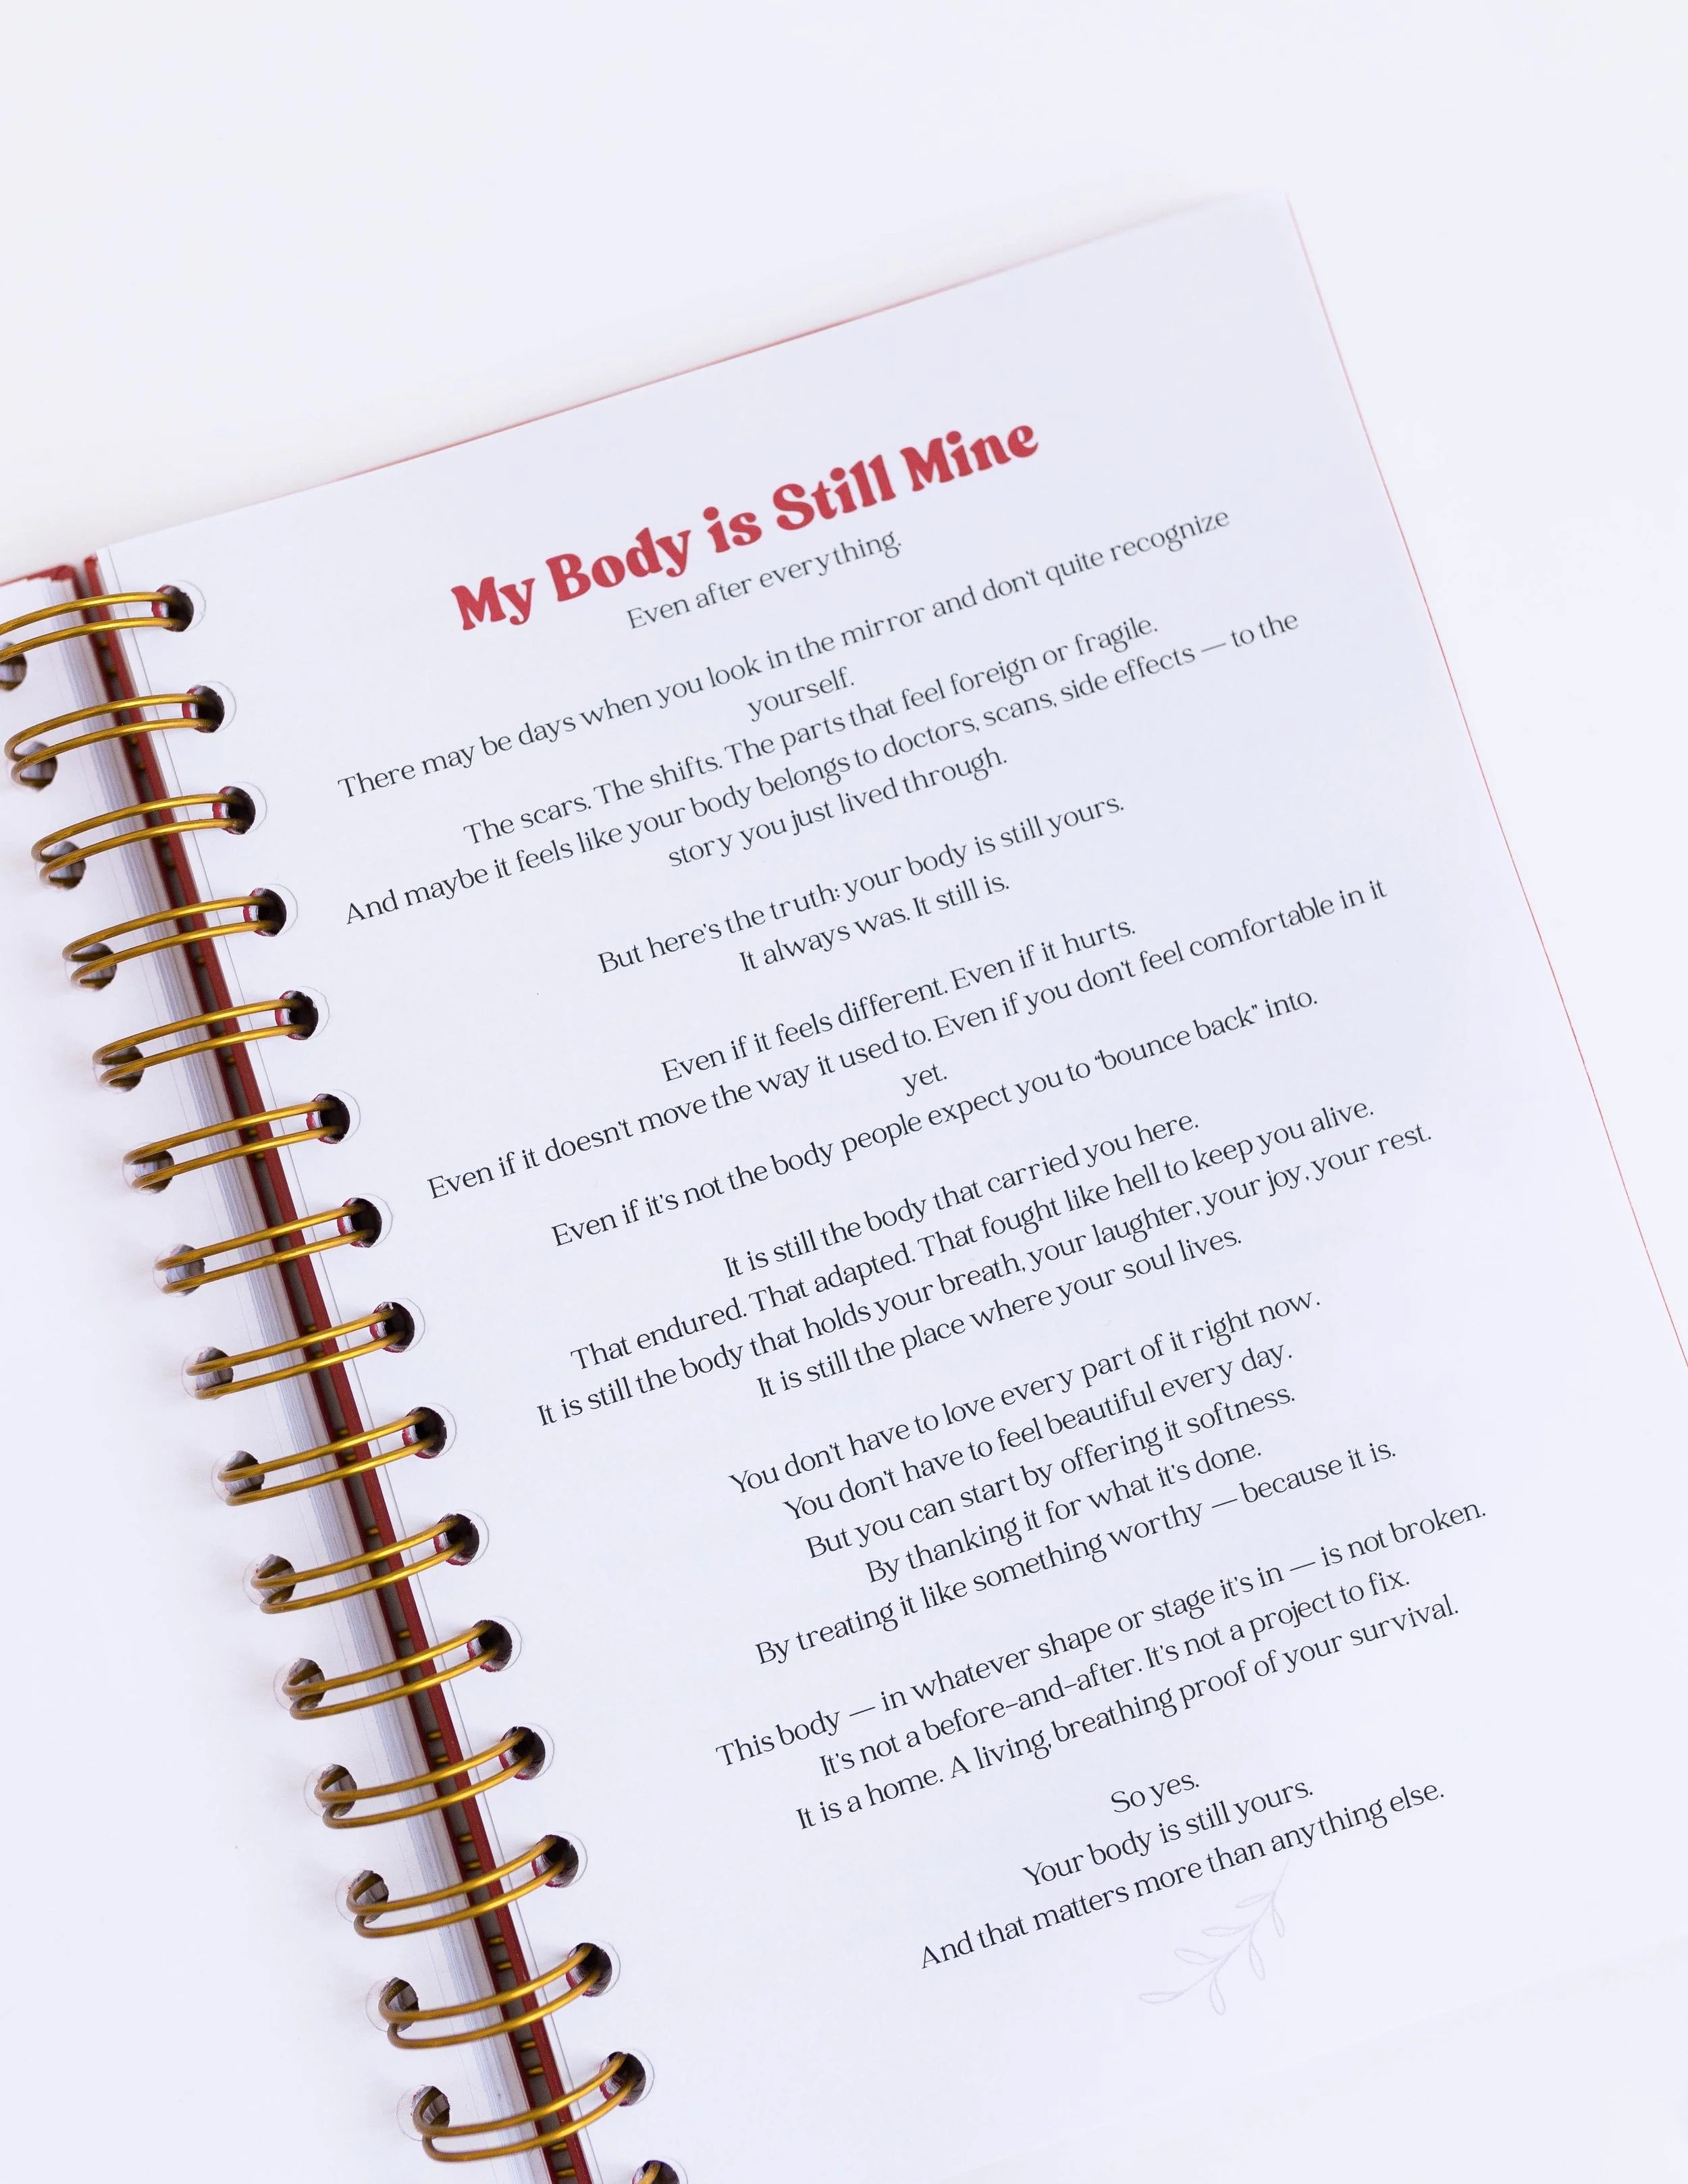 My Body is Still Mine
Even after everything.
There may be days when you look in the mirror and don't quite recognize
yourself.
The scars. The shifts. The parts that feel foreign or fragile.
And maybe it feels like your body belongs to doctors, scans, side effects — to the
story you just lived through.
But here's the truth: your body is still yours.
It always was. It still is.
Even if it feels different. Even if it hurts.
Even if it doesn't move the way it used to. Even if you don't feel comfortable in it
yet.
Even if it's not the body people expect you to “bounce back” into.
It is still the body that carried you here.
That endured. That adapted. That fought like hell to keep you alive.
It is still the body that holds your breath, your laughter, your joy, your rest.
It is still the place where your soul lives.
You don't have to love every part of it right now.
You don't have to feel beautiful every day.
But you can start by offering it softness.
By thanking it for what it's done.
By treating it like something worthy — because it is.
This body — in whatever shape or stage it's in — is not broken.
It's not a before-and-after. It's not a project to fix.
It is a home. A living, breathing proof of your survival.
So yes.
Your body is still yours.
And that matters more than anything else.